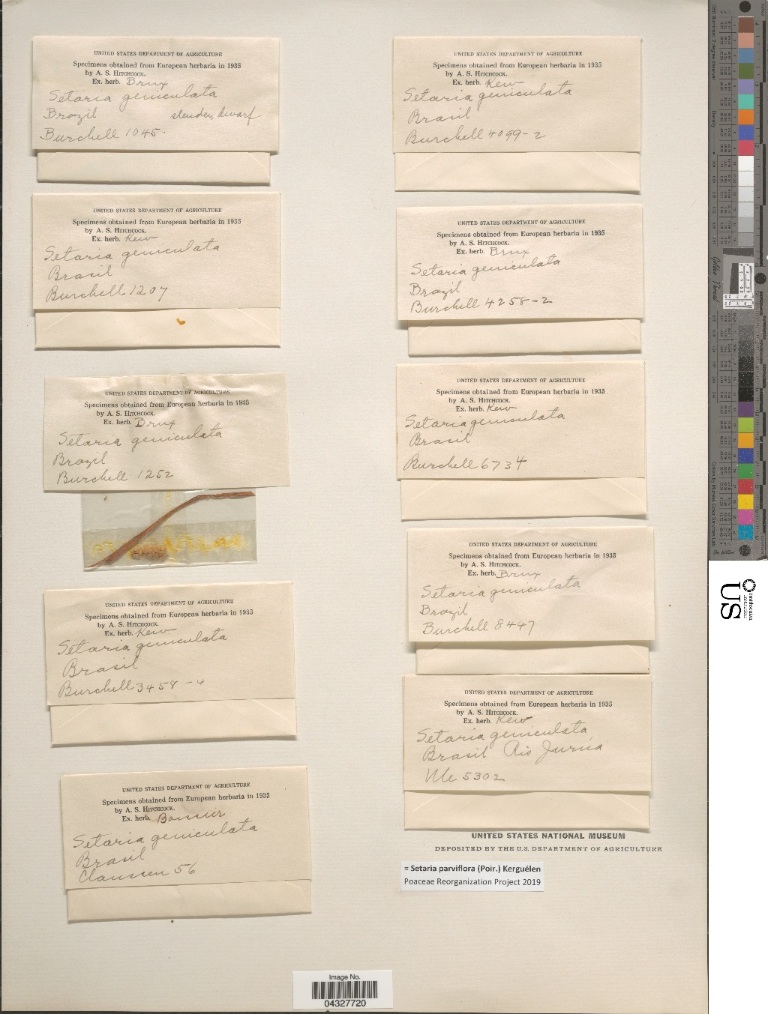 UNITED STATES DEPARTMENT OF AGRICULTURE
Specimens obtained from European herbaria in 1935
by A. S. HITCHCOCK.
Ex. herb. Brux
Setaria geniculata
Brazil slender, dwarf
Burchell 1045
UNITED STATES DEPARTMENT OF AGRICULTURE
Specimens obtained from European herbaria in 1935
by A. S. HITCHCOCK.
Ex. herb. Kew
Setaria geniculata
Brasil
Burchell 1207
UNITED STATES DEPARTMENT OF AGRICULTURE
Specimens obtained from European herbaria in 1935
by A. S. HITCHCOCK.
Ex. herb. Brux
Setaria geniculata
Brazil
Burchell 1252
UNITED STATES DEPARTMENT OF AGRICULTURE
Specimens obtained from European herbaria in 1935
by A. S. HITCHCOCK.
Ex. herb. Kew
Setaria geniculata
Brasil
Burchell 3458-4
UNITED STATES DEPARTMENT OF AGRICULTURE
Specimens obtained from European herbaria in 1935
by A. S. HITCHCOCK.
Ex. herb.
Setaria geniculata
Brasil
Claussen 56
UNITED STATES DEPARTMENT OF AGRICULTURE
Specimens obtained from European herbaria in 1935
by A. S. HITCHCOCK.
Ex. herb. Kew
Setaria geniculata
Brasil
Burchell 4099-2
UNITED STATES DEPARTMENT OF AGRICULTURE
Specimens obtained from European herbaria in 1935
by A. S. HITCHCOCK.
Ex. herb. Brux
Setaria geniculata
Brazil
Burchell 4258-2
UNITED STATES DEPARTMENT OF AGRICULTURE
Specimens obtained from European herbaria in 1935
by A. S. HITCHCOCK.
Ex. herb. Kew
Setaria geniculata
Brasil
Burchell 6734
UNITED STATES DEPARTMENT OF AGRICULTURE
Specimens obtained from European herbaria in 1935
by A. S. HITCHCOCK.
Ex. herb. Brux
Setaria geniculata
Brazil
Burchell 8447
UNITED STATES DEPARTMENT OF AGRICULTURE
Specimens obtained from European herbaria in 1935
by A. S. HITCHCOCK.
Ex. herb. Kew
Setaria geniculata
Brasil Rio Juruá
Ule 5302
UNITED STATES NATIONAL MUSEUM
DEPOSITED BY THE U.S. DEPARTMENT OF AGRICULTURE
= Setaria parviflora (Poir.) Kerguélen
Poaceae Reorganization Project 2019
Image No.
04327720
US